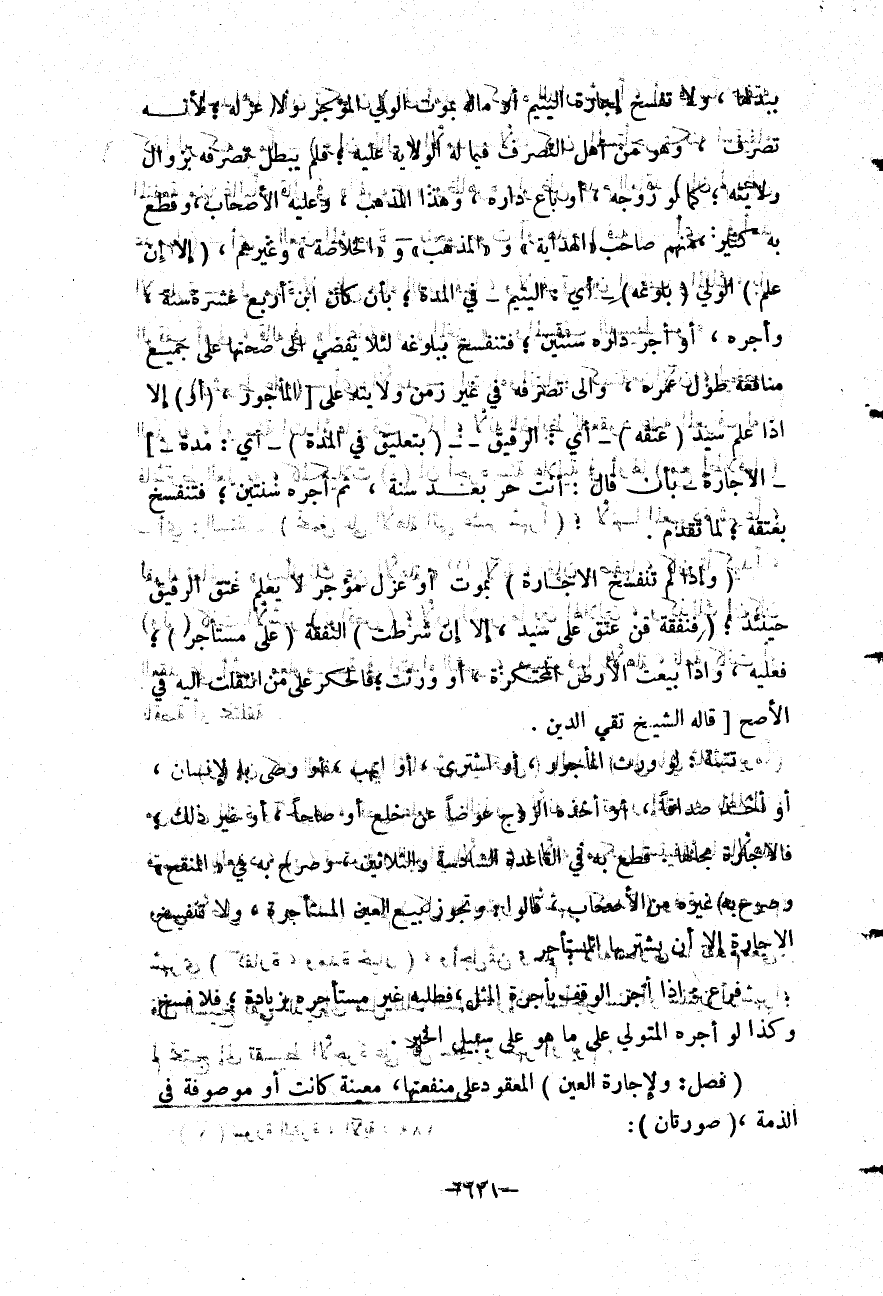 ببدلها ، ولا تنفسخ إجارة اليتيم أو ماله بموت الولي المؤجر ولا عزله ؛ لأنـــه
تصرف ، وهو من أهل التصرف فيما له الولاية عليه ؛ فلم يبطل تصرفه بزوال
ولايته ؛ كما لو زوجه ، أو باع داره ، وهذا المذهب ، وعليه الأصحاب، وقطع
به كثير ؛ منهم صاحب «الهداية» و «المذهب» و «الخلاصة» وغيرهم ، ( إلا إن
علم ) الولي ( بلوغه) ـ أي : اليتيم ـ في المدة ؛ بأن كان ابن أربع عشرة سنة ،
وأجره ، أو أجر داره سنتين ؛ فتنفسخ ببلوغه لئلا يفضي الى صحتها على جميع
منافعه طول عمره ، والى تصرفه في غير زمن ولايته على [ المأجور ، (أو) إلا
اذا علم سيد ( عتقه ) ـ أي : الرقيق ـ ( بتعليق في المدة ) ـ أي : مدة ـ ]
ـ الاجارة ـ بأن قال : أنت حر بعـــد سنة ، ثم أجره سنتين ؛ فتنفسخ
بعتقه ؛ لما تقدم .
( واذا لم تنفسخ الاجارة ) بموت أو عزل مؤجر لا يعلم عتق الرقيق
حينئذ ؛ ( فنفقة قن عتق على سيد ، إلا إن شرطت ) النفقة ( على مستأجر ) ؛
فعليه ، واذا بيعت الأرض المحتكرة ، أو ورثت ؛ فالحكر على من انتقلت اليه في
الأصح [ قاله الشيخ تقي الدين .
تتمة : لو ورث المأجور ، أو اشترى ، أو اتهب ، أو وصى به لإنسان ،
أو أخذ صداقاً ، أو أخذه الزوج عوضاً عن خلع أو صلحاً ، أو غير ذلك ؛
فالاجارة بحالها . قطع به في القاعدة السادسة والثلاثين ، وصرح به في «المنقح»
وصرح به غيره من الأصحاب ، قالوا : وتجوز بيع العين المستأجرة ، ولا تنفسخ
الاجارة إلا أن يشتريها المستأجر .
فرع : اذا أجر الوقف بأجرة المثل ، فطلبه غير مستأجره بزيادة ؛ فلا فسخ
وكذا لو أجره المتولي على ما هو على سبيل الخير .
( فصل : ولإجارة العين ) المعقود على منفعتها ، معينة كانت أو موصوفة في
الذمة ، ( صورتان ) :